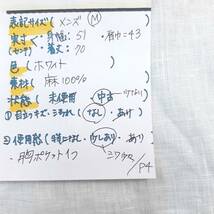 表記サイズ(メンズ)(M)
実寸・身幅:51・肩巾=43
(センチ)・着丈:70
色(ホワイト)
素材(麻100%)
状態(未使用 中古
①目立つキズ・ヨゴレ(なし・あり)
②使用感(特になし・少しあり・あり)
・胸ポケット1つ
P4